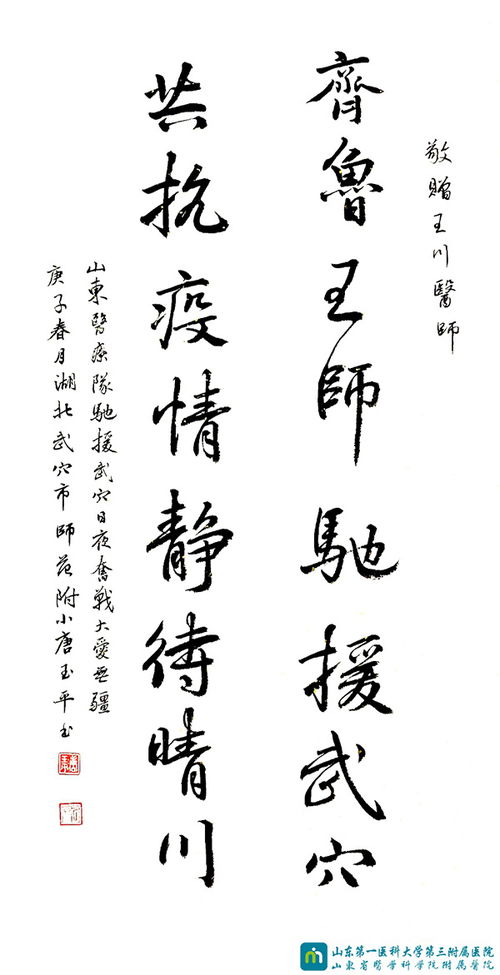 敬贈王川醫師
齊魯王師馳援武穴
共抗疫情静待晴川
山東醫療隊馳援武穴日夜奮戰大愛無疆
庚子春月湖北武穴市師范附小唐玉平书
山东第一医科大学第三附属医院
山東省醫學科學院附屬醫院